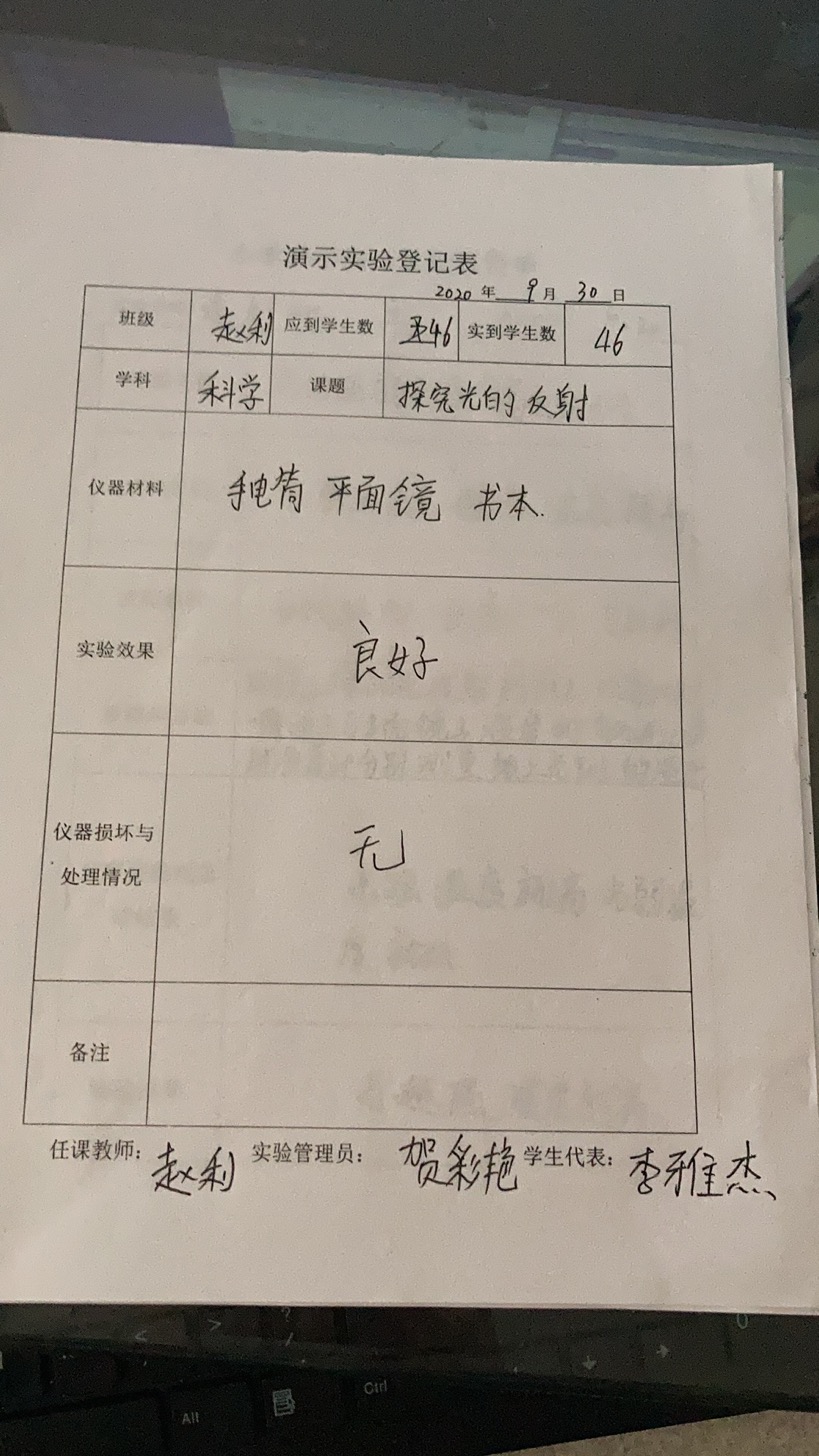 演示实验登记表
2020 年 9 月 30 日
班级 赵利 应到学生数 46 实到学生数 46
学科 科学 课题 探究光的反射
仪器材料 手电筒 平面镜 书本.
实验效果 良好
仪器损坏与
处理情况 无
备注
任课教师: 赵利 实验管理员: 贺彩艳 学生代表: 李雅杰
< > ? /
Alt Ctrl 0